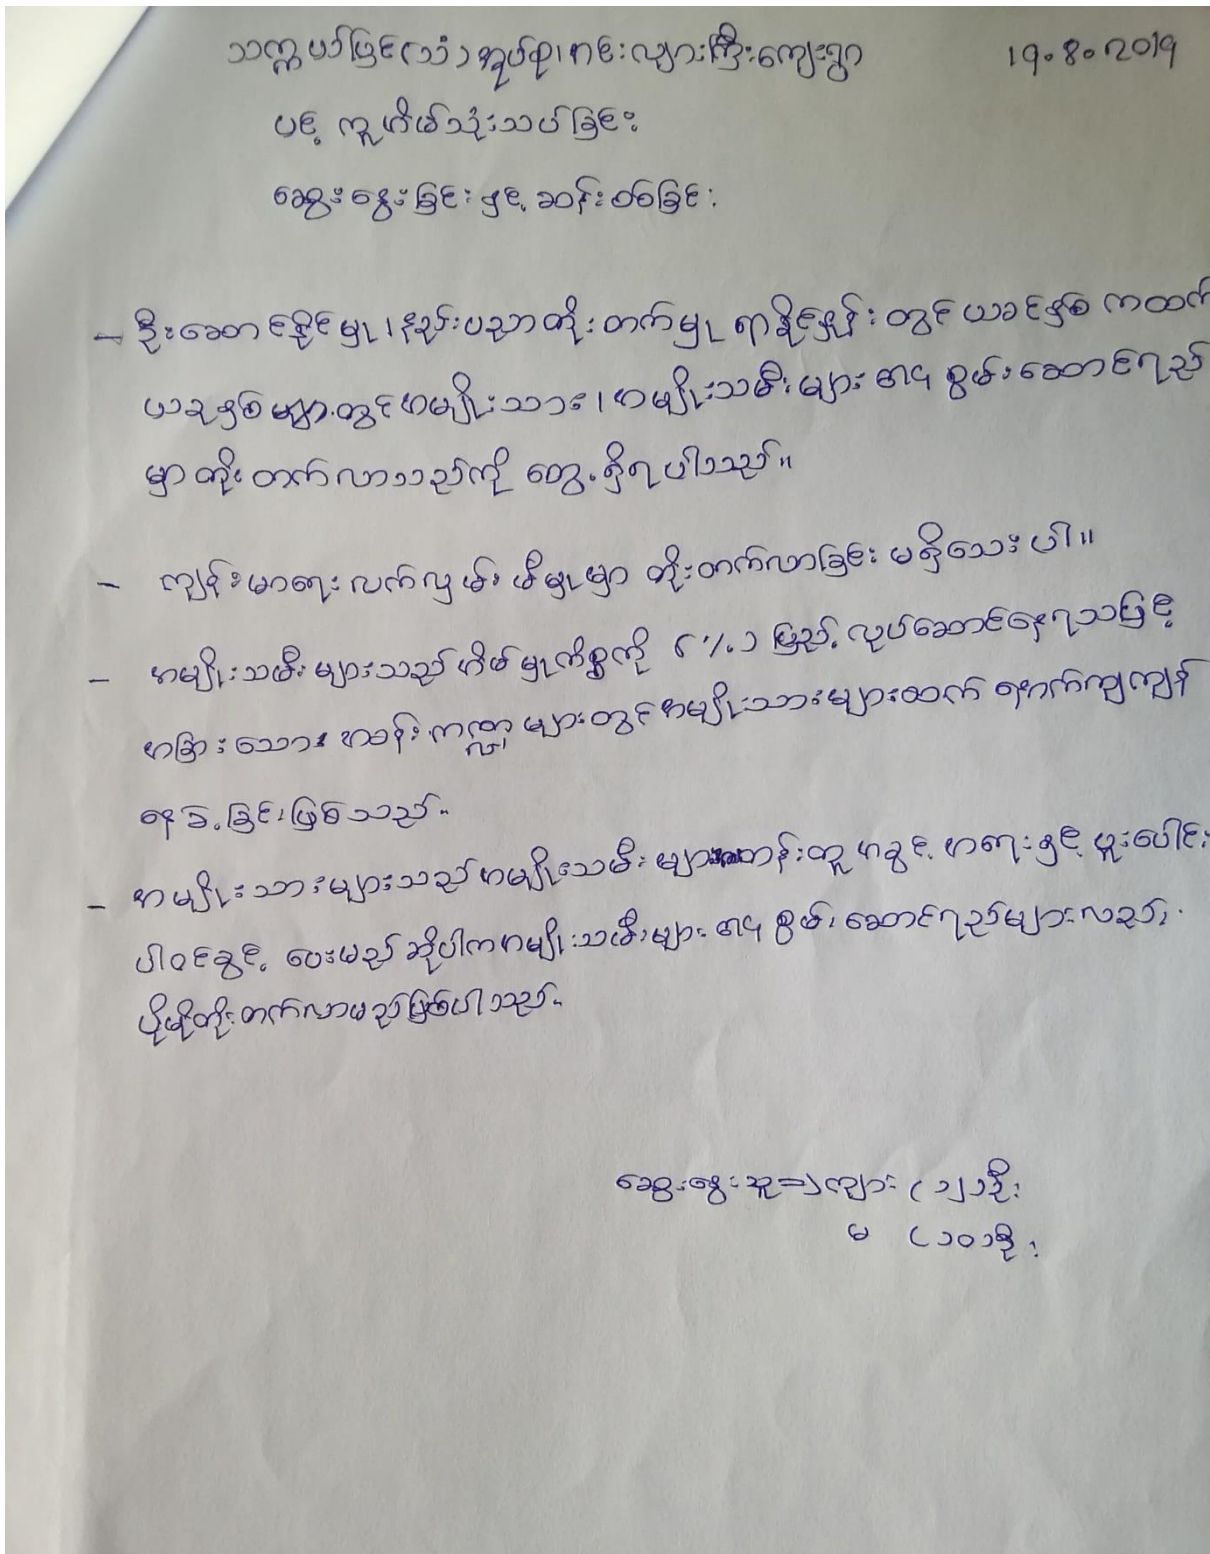 သက္ကယ်ပြင်(သံ)အုပ်စု၊ဂင်းလျားကြီးကျေးရွာ 19.8.2019
ပင့်ကူအိမ်သုံးသပ်ခြင်း
ဆွေးနွေးခြင်းနှင့်ဆန်းစစ်ခြင်း
- ဦးဆောင်နိုင်မှု၊နည်းပညာတိုးတက်မှု ရာခိုင်နှုန်းတွင် ယခင်နှစ် ကထက်
ယခုနှစ်မှာတွင်အမျိုးသား၊အမျိုးသမီးများ၏စွမ်းဆောင်ရည်
မှာတိုးတက်လာသည်ကို တွေ့ရှိရပါသည်။
- ကျန်းမာရေးလက်လှမ်းမီမှုမှာ တိုးတက်လာခြင်း မရှိသေးပါ။
- အမျိုးသမီးများသည်အိမ်မှုကိစ္စကို (%)ပြည့် လုပ်ဆောင်နေရသဖြင့်
အခြားသော အခန်းကဏ္ဍများတွင်အမျိုးသားများထက် နောက်ကျကျန်
နေခဲ့ခြင်းဖြစ်သည်။
- အမျိုးသားများသည်အမျိုးသမီးများအားတန်းတူအခွင့်အရေးနှင့်ပူးပေါင်း
ပါဝင်ခွင့် ပေးမည်ဆိုပါကအမျိုးသမီးများ၏စွမ်းဆောင်ရည်များလည်း
ပိုမိုတိုးတက်လာမည်ဖြစ်ပါသည်။
ဆွေးနွေးသူ=>ကျား (၁၂)ဦး
မ (၁၀)ဦး